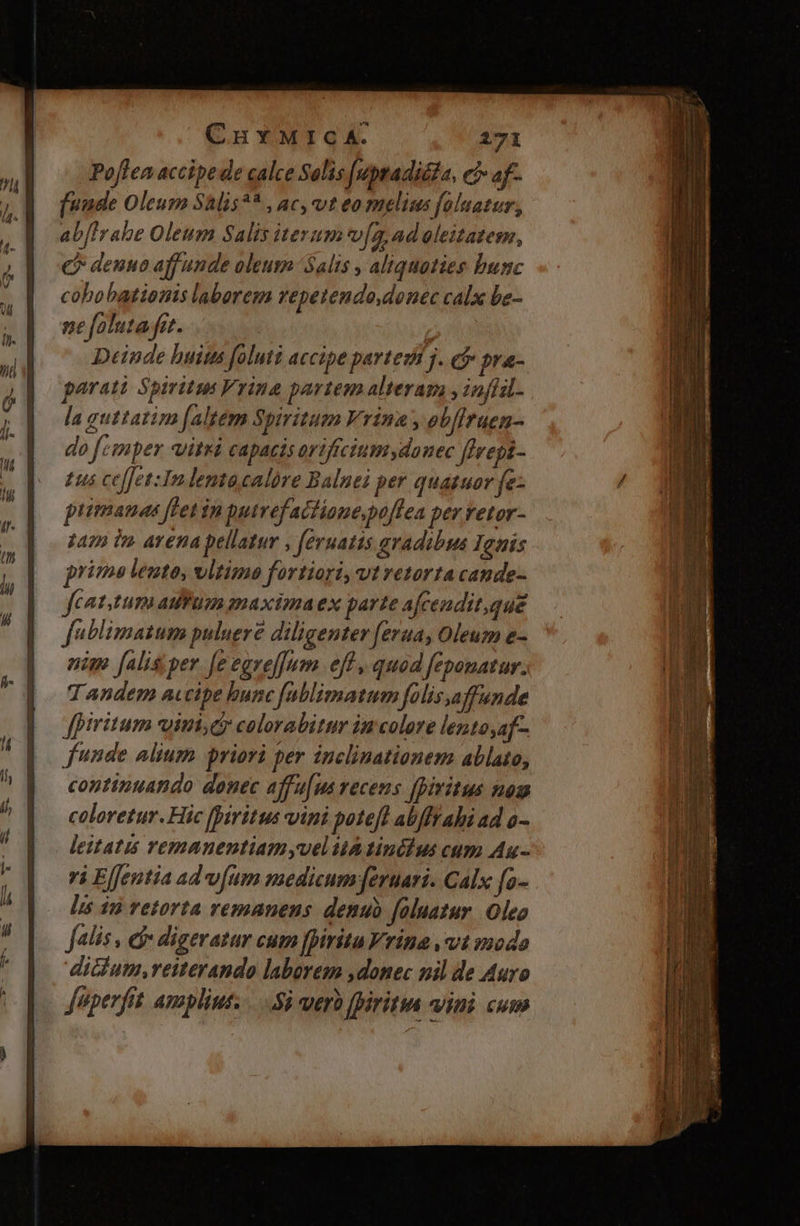 CHYMICA. 271
Postea accipe de calce Solis supradicta, & af-
funde Oleum Salis** , ac, vt eo melius soluatur,
abstrahe Oleum Salis iterum vsq; ad oleitatem,
& denuo affunde oleum Salis , aliquoties hunc
cohobationis laborem repetendo, donec calx be-
ne soluta sit.
Deinde huius soluti accipe partem j. & præ-
parati Spiritus Vrinæ partem alteram , instil-
la guttatim saltem Spiritum Vrinæ , obstruen-
do semper vitri capacis orificium, donec strepi-
tus cesset: In lento calore Balnei per quatuor se-
ptimanas stet in putrefactione, postea per retor-
tam in arena pellatur , seruatis gradibus Ignis
primo lento, vltimo fortiori, vt retorta cande-
scat, tum aurum maxima ex parte ascendit, quē
sublimatum puluerē diligenter serua, Oleum e-
nim salis per se egressum est , quod seponatur.
Tandem accipe hunc sublimatum solis, affunde
spiritum vini, & colorabitur in calore lento, af-
funde alium priori per inclinationem ablato,
continuando donec affusus recens spiritus non
coloretur. Hic spiritus vini potest abstrahi ad o-
leitatis remanentiam, vel ità tinctus cum Au-
ri Essentia ad vsum medicum seruari. Calx so-
lis in retorta remanens denuò soluatur Oleo
salis , & digeratur cum spiritu Vrinæ , vt modo
dictum, reiterando laborem , donec nil de Auro
supersit amplius. Si verò spiritus vini cum